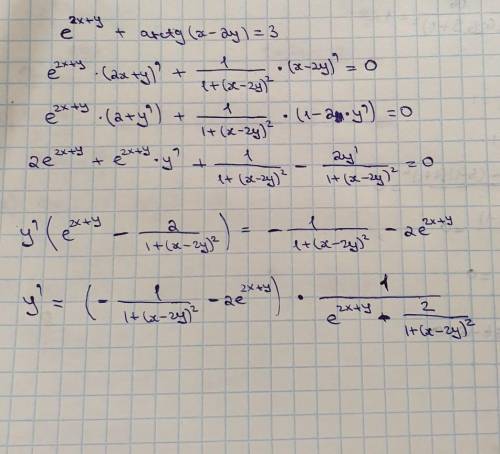 e^{2x+y} + arctg(x-2y) = 3
e^{2x+y} · (2x+y)' + \frac{1}{1+(x-2y)^2} · (x-2y)' = 0
e^{2x+y} · (2+y') + \frac{1}{1+(x-2y)^2} · (1-2·y') = 0
2e^{2x+y} + e^{2x+y} · y' + \frac{1}{1+(x-2y)^2} - \frac{2y'}{1+(x-2y)^2} = 0
y' (e^{2x+y} - \frac{2}{1+(x-2y)^2}) = - \frac{1}{1+(x-2y)^2} - 2e^{2x+y}
y' = (- \frac{1}{1+(x-2y)^2} - 2e^{2x+y}) · \frac{1}{e^{2x+y} - \frac{2}{1+(x-2y)^2}}